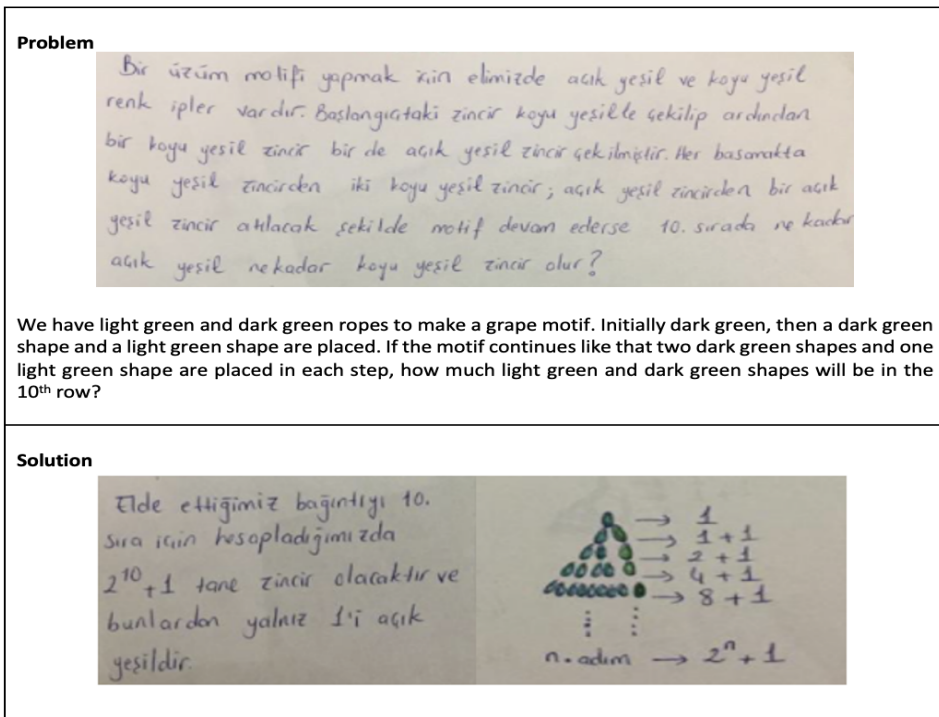 Problem
Bir üzüm motifi yapmak için elimizde açık yeşil ve koyu yeşil
renk ipler vardır. Başlangıçtaki zincir koyu yeşille çekilip ardından
bir koyu yeşil zincir bir de açık yeşil zincir çekilmiştir. Her basamakta
koyu yeşil zincirden iki koyu yeşil zincir; açık yeşil zincirden bir açık
yeşil zincir atılacak şekilde motif devam ederse 10. sırada ne kadar
açık yeşil ne kadar koyu yeşil zincir olur?
We have light green and dark green ropes to make a grape motif. Initially dark green, then a dark green
shape and a light green shape are placed. If the motif continues like that two dark green shapes and one
light green shape are placed in each step, how much light green and dark green shapes will be in the
10th row?
Solution
Elde ettiğimiz bağıntıyı 10.
sıra için hesapladığımızda
2^10+1 tane zincir olacaktır ve
bunlardan yalnız 1'i açık
yeşildir.
→ 1
→ 1+1
→ 2+1
→ 4+1
→ 8+1
n. adım → 2^n+1